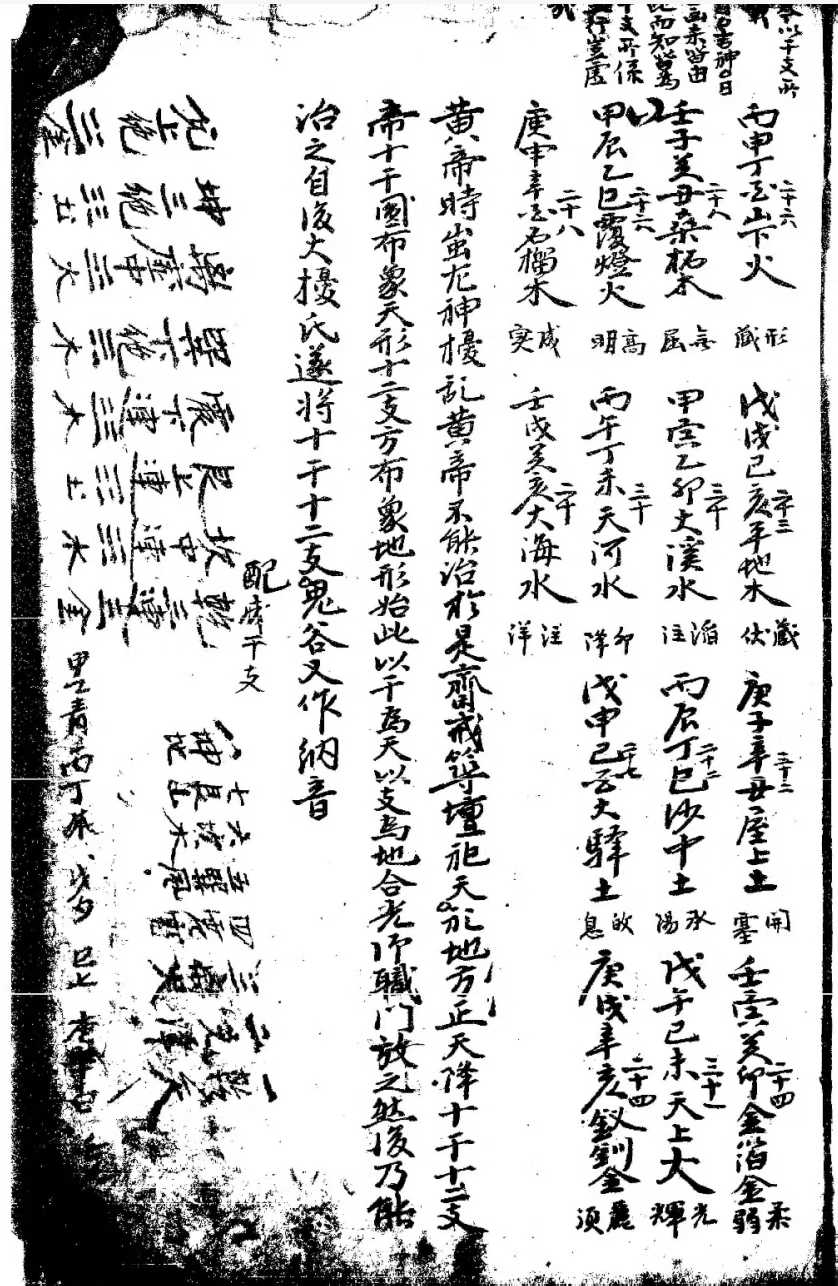 丙申丁酉山下火 二十六 形藏 戊戌己亥平地木 二十三 藏伏 庚子辛丑屋上土 三十二 開塞 壬寅癸卯金箔金 二十四 柔弱
壬子癸丑桑柘木 二十八 無屈 甲寅乙卯大溪水 三十 滔注 丙辰丁巳沙中土 二十二 承陽 戊午己未天上火 三十一 光輝
甲辰乙巳覆燈火 二十六 高明 丙午丁未天河水 三十 降 戊申己酉大驛土 二十七 息 庚戌辛亥釵釧金 二十四 麗須
庚申辛酉石榴木 二十八 成实 壬戌癸亥大海水 二十 汪洋
黄帝時蚩尤神擾乱黄帝不能治於是齋戒築壇祀天形地方正天降十干十二支
帝十干圓布象天形十二支方布象地形始此以干為天以支為地合光仰職門放之然後乃能
治之自後大撓氏遂將十干十二支鬼谷又作納音
配成干支
乾三連 ☰ 金
坎中連 ☵ 水
艮上連 ☶ 土
震下連 ☳ 木
巽下絶 ☴ 木
离虛中 ☲ 火
坤三絶 ☷ 土
兑上絶 ☱ 金
一乾天
二兑澤
三离火
四震雷
五巽風
六坎水
七艮山
八坤地
甲乙青丙丁朱戊勾